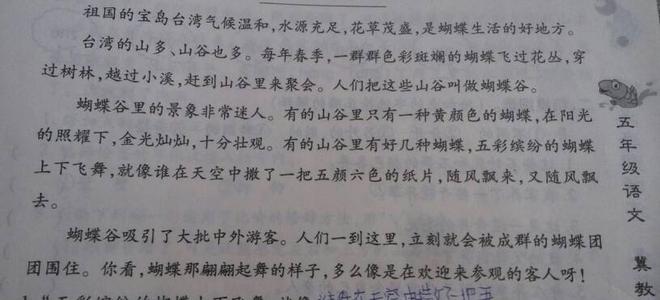 祖国的宝岛台湾气候温和，水源充足，花草茂盛，是蝴蝶生活的好地方。
台湾的山多、山谷也多。每年春季，一群群色彩斑斓的蝴蝶飞过花丛，穿
过树林，越过小溪，赶到山谷里来聚会。人们把这些山谷叫做蝴蝶谷。
蝴蝶谷里的景象非常迷人。有的山谷里只有一种黄颜色的蝴蝶，在阳光
的照耀下，金光灿灿，十分壮观。有的山谷里有好几种蝴蝶，五彩缤纷的蝴蝶
上下飞舞，就像谁在天空中撒了一把五颜六色的纸片，随风飘来，又随风飘
去。
蝴蝶谷吸引了大批中外游客。人们一到这里，立刻就会被成群的蝴蝶团
团围住。你看，蝴蝶那翩翩起舞的样子，多么像是在欢迎来参观的客人呀！
五彩缤纷的蝴蝶上下飞舞，就像
五年级语文
冀教